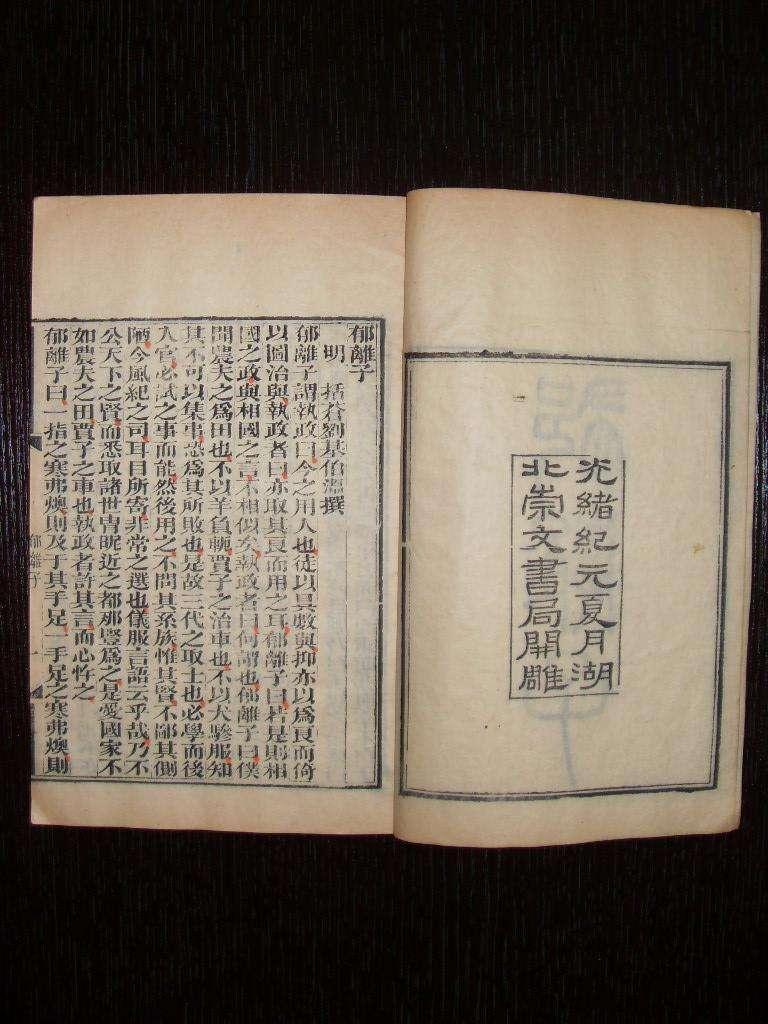 光緒紀元夏月湖
北崇文書局開雕
郁離子
明 括蒼劉基伯溫撰
郁離子謂執政曰今之用人也徒以具數與抑亦以爲良而倚
以圖治與執政者曰亦取其良而用之耳郁離子曰若是則相
國之政與相國之言不相似矣執政者曰何謂也郁離子曰僕
聞農夫之爲田也不以羊負軛賈子之治車也不以犬驂服知
其不可以集事恐爲其所敗也是故三代之取士也必學而後
入官必試之事而能然後用之不問其系族惟其賢不鄙其側
陋今風紀之司耳目所寄非常之選也儀服言語云乎哉乃不
公天下之賢而悉取諸世胄昵近之都那豎爲之是愛國家不
如農夫之田賈子之車也執政者許其言而心忤之
郁離子曰一指之寒弗燠則及于其手足一手足之寒弗燠則
郁離子
一